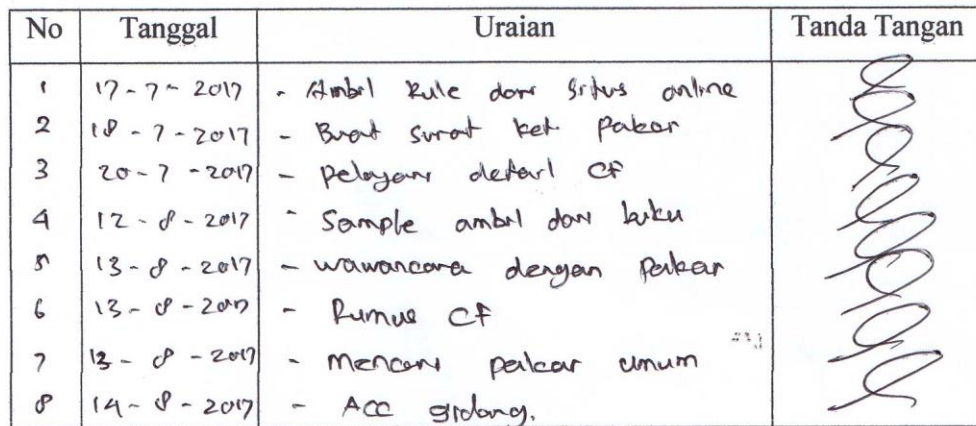 No Tanggal Uraian Tanda Tangan
1 17 - 7 - 2017 - Ambil Rule dari Situs online
2 18 - 7 - 2017 - Buat surat ket. Pakar
3 20 - 7 - 2017 - Pelajari detail CF
4 12 - 8 - 2017 - Sample ambil dari buku
5 13 - 8 - 2017 - wawancara dengan Pakar
6 13 - 8 - 2017 - Rumus CF
7 13 - 8 - 2017 - Mencari pakar umum
8 14 - 8 - 2017 - ACC sidang.